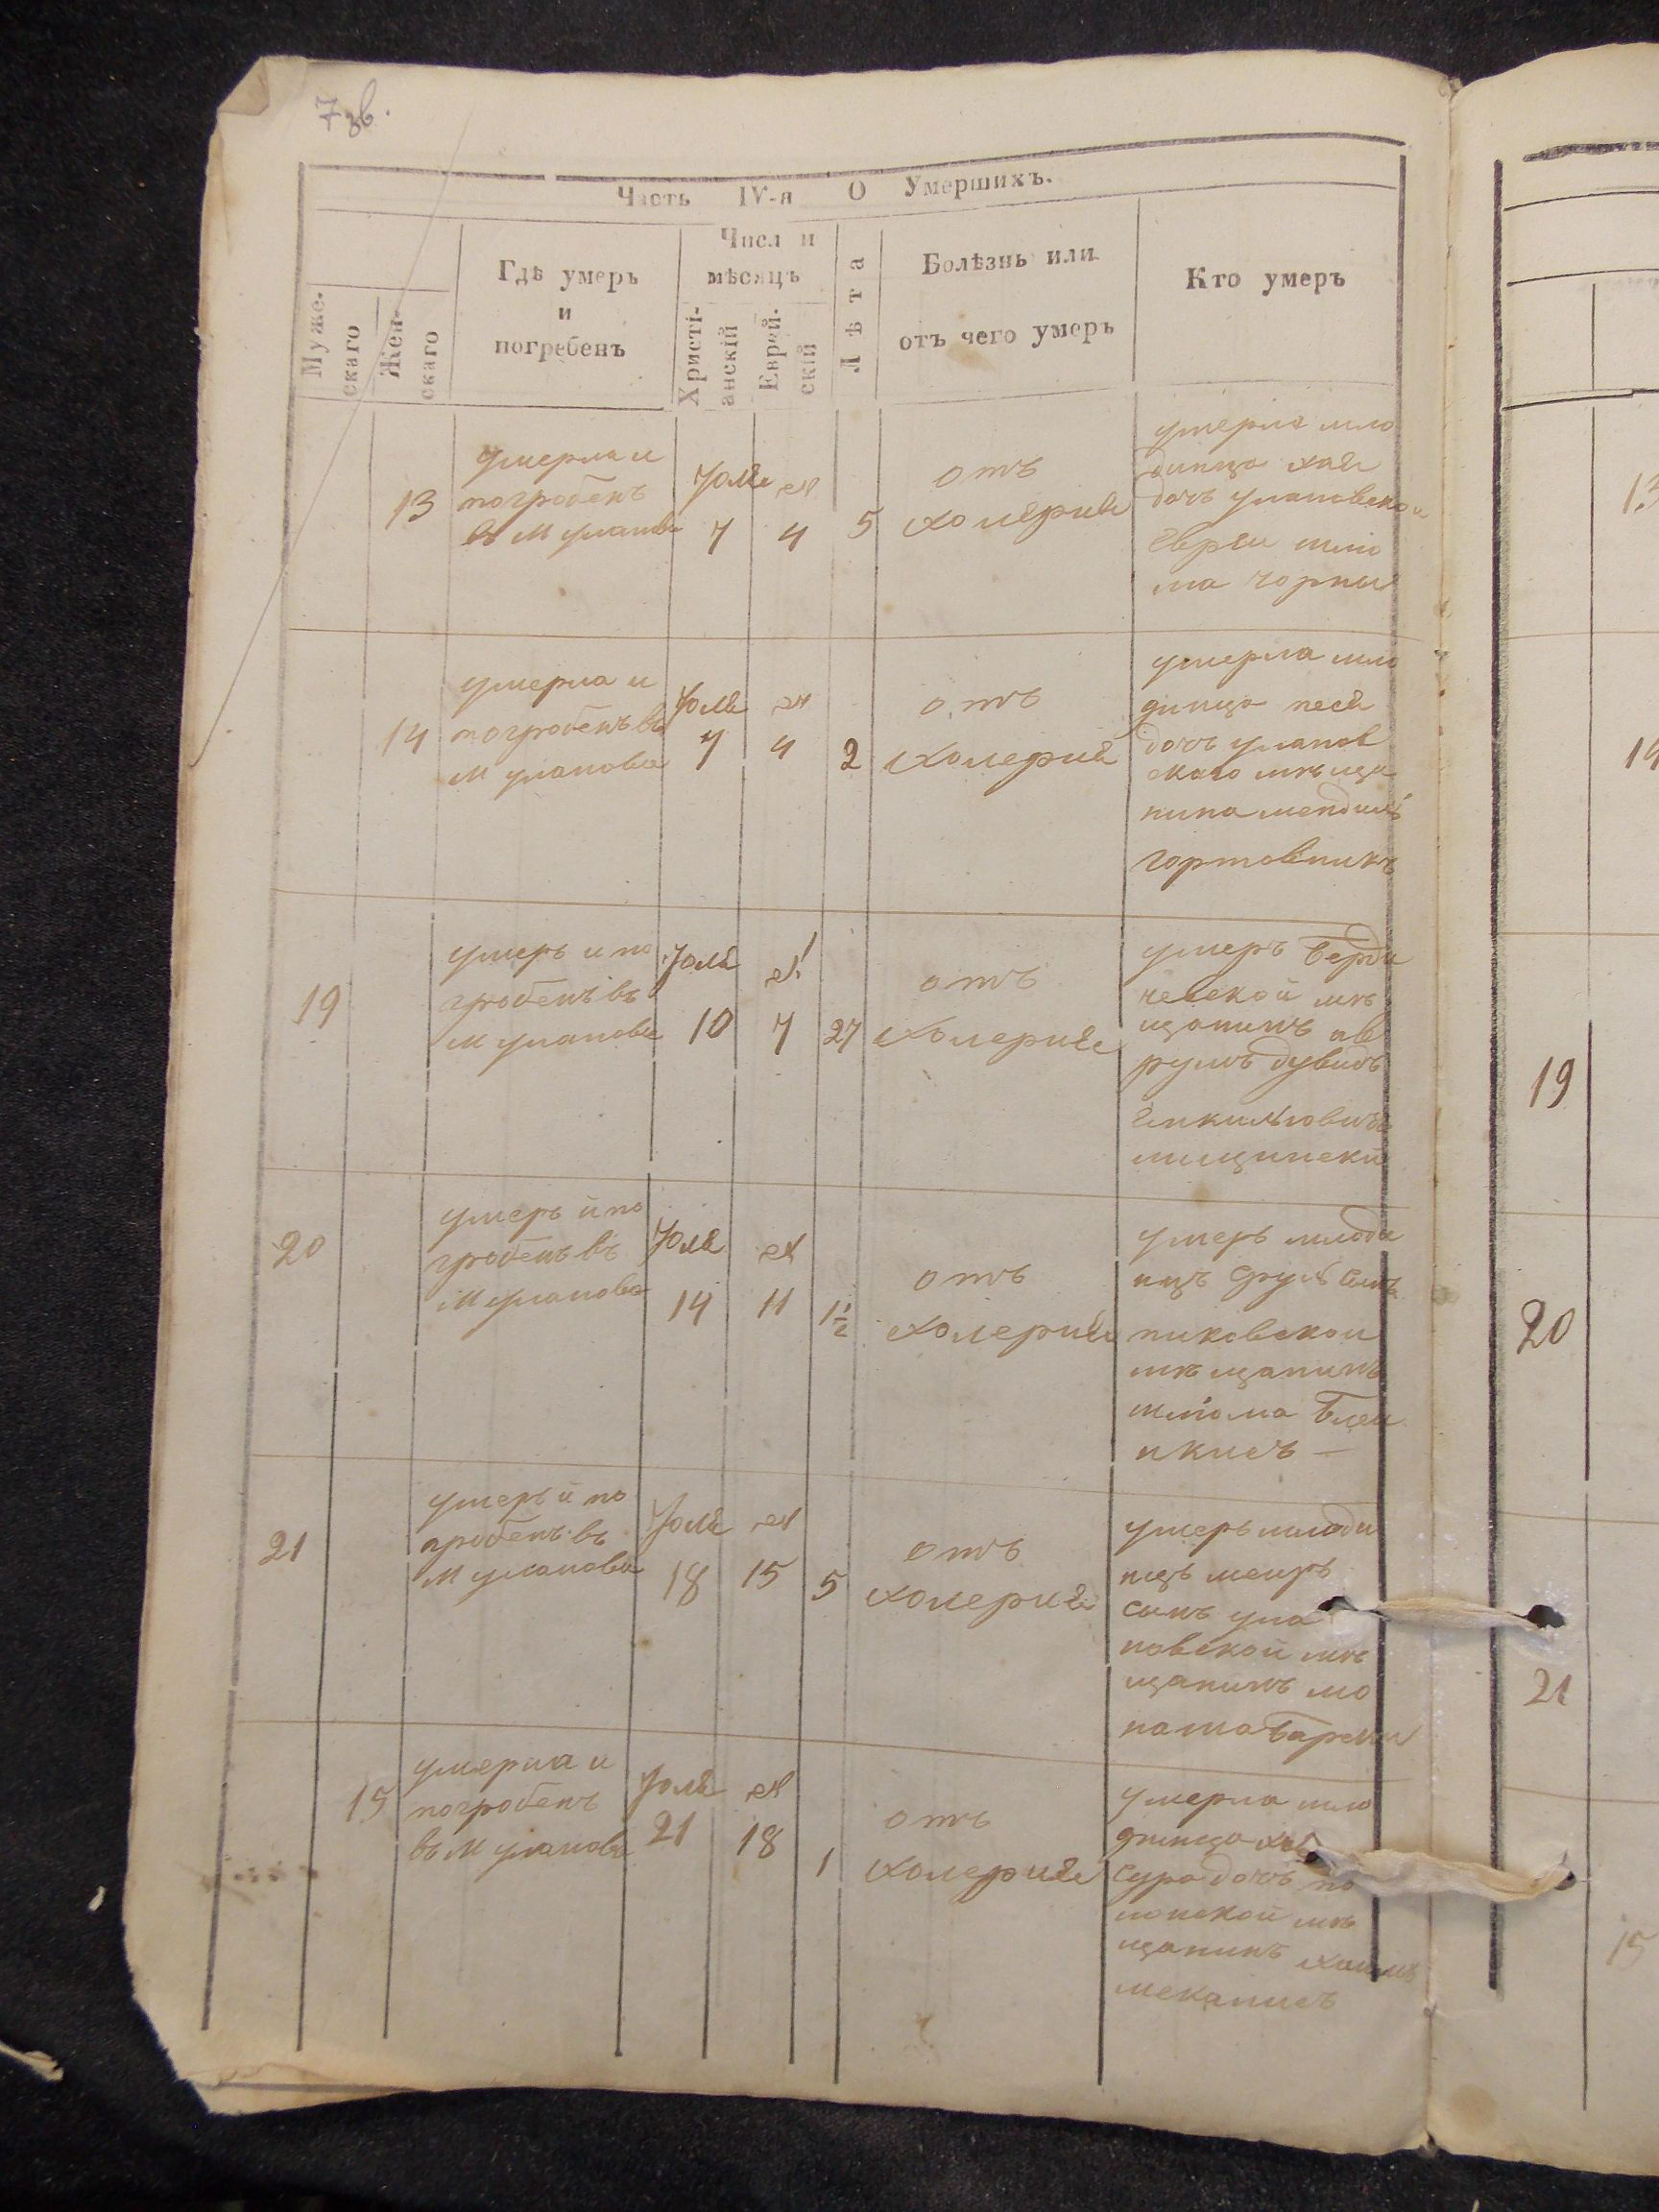 7 зв.
Часть IV-я О Умершихъ.
Муже-
скаго
Жен-
скаго
Гдѣ умеръ
и
погребенъ
Числ и
мѣсяцъ
Христі-
анскій
Еврей-
скій
Лѣта
Болѣзнь или
отъ чего умеръ
Кто умеръ
13
умерла и
погробенъ
въ М Уланова
Юля
7
4
5
отъ
холерие
умерла мла
динца хая
дочь улановской
еврей шлио
ма чорный
14
умерла и
погробенъ въ
М уланова
Юля
7
4
2
отъ
холерие
умерла мла
динца песя
дочь уланов
скаго мѣща
нина
19
умеръ и по
гробенъ въ
М уланова
Юля
10
7
27
отъ
холерие
умеръ Берди
чевской мѣ
щанинъ ав
румъ дувидъ
20
умеръ й по
гробенъ въ
М уланова
Юля
14
11
1½
отъ
холерие
умеръ млади
нцъ сруль сынъ
пиковской
мѣщанинъ
шлиома
21
умеръ й по
гробенъ въ
М уланова
Юля
18
15
5
отъ
холерие
умеръ млади
нцъ меиръ
сынъ ула
новской мѣ
щанинъ мо
наша
15
умерла и
погробенъ
въ М уланова
Юля
21
18
1
отъ
холерие
умерла мла
динца
сура дочь по
лонской мѣ
щанинъ хаимъ
13
14
19
20
21
15